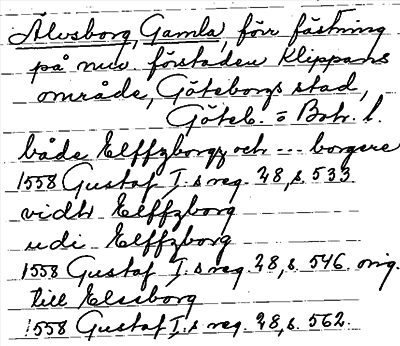 Älvsborg, Gamla, förr fästning
på nuv. förstaden Klippans
område, Göteborgs stad,
Göteb. = Boh. l.
både Elffzborgz och --- borgere
1558 Gustaf I.s reg. 28, s. 533
vidh Elffzborg
udi Elffzborg
1558 Gustaf I.s reg. 28, s. 546. orig.
till Elssborg
1558 Gustaf I.s reg. 28, s. 562.